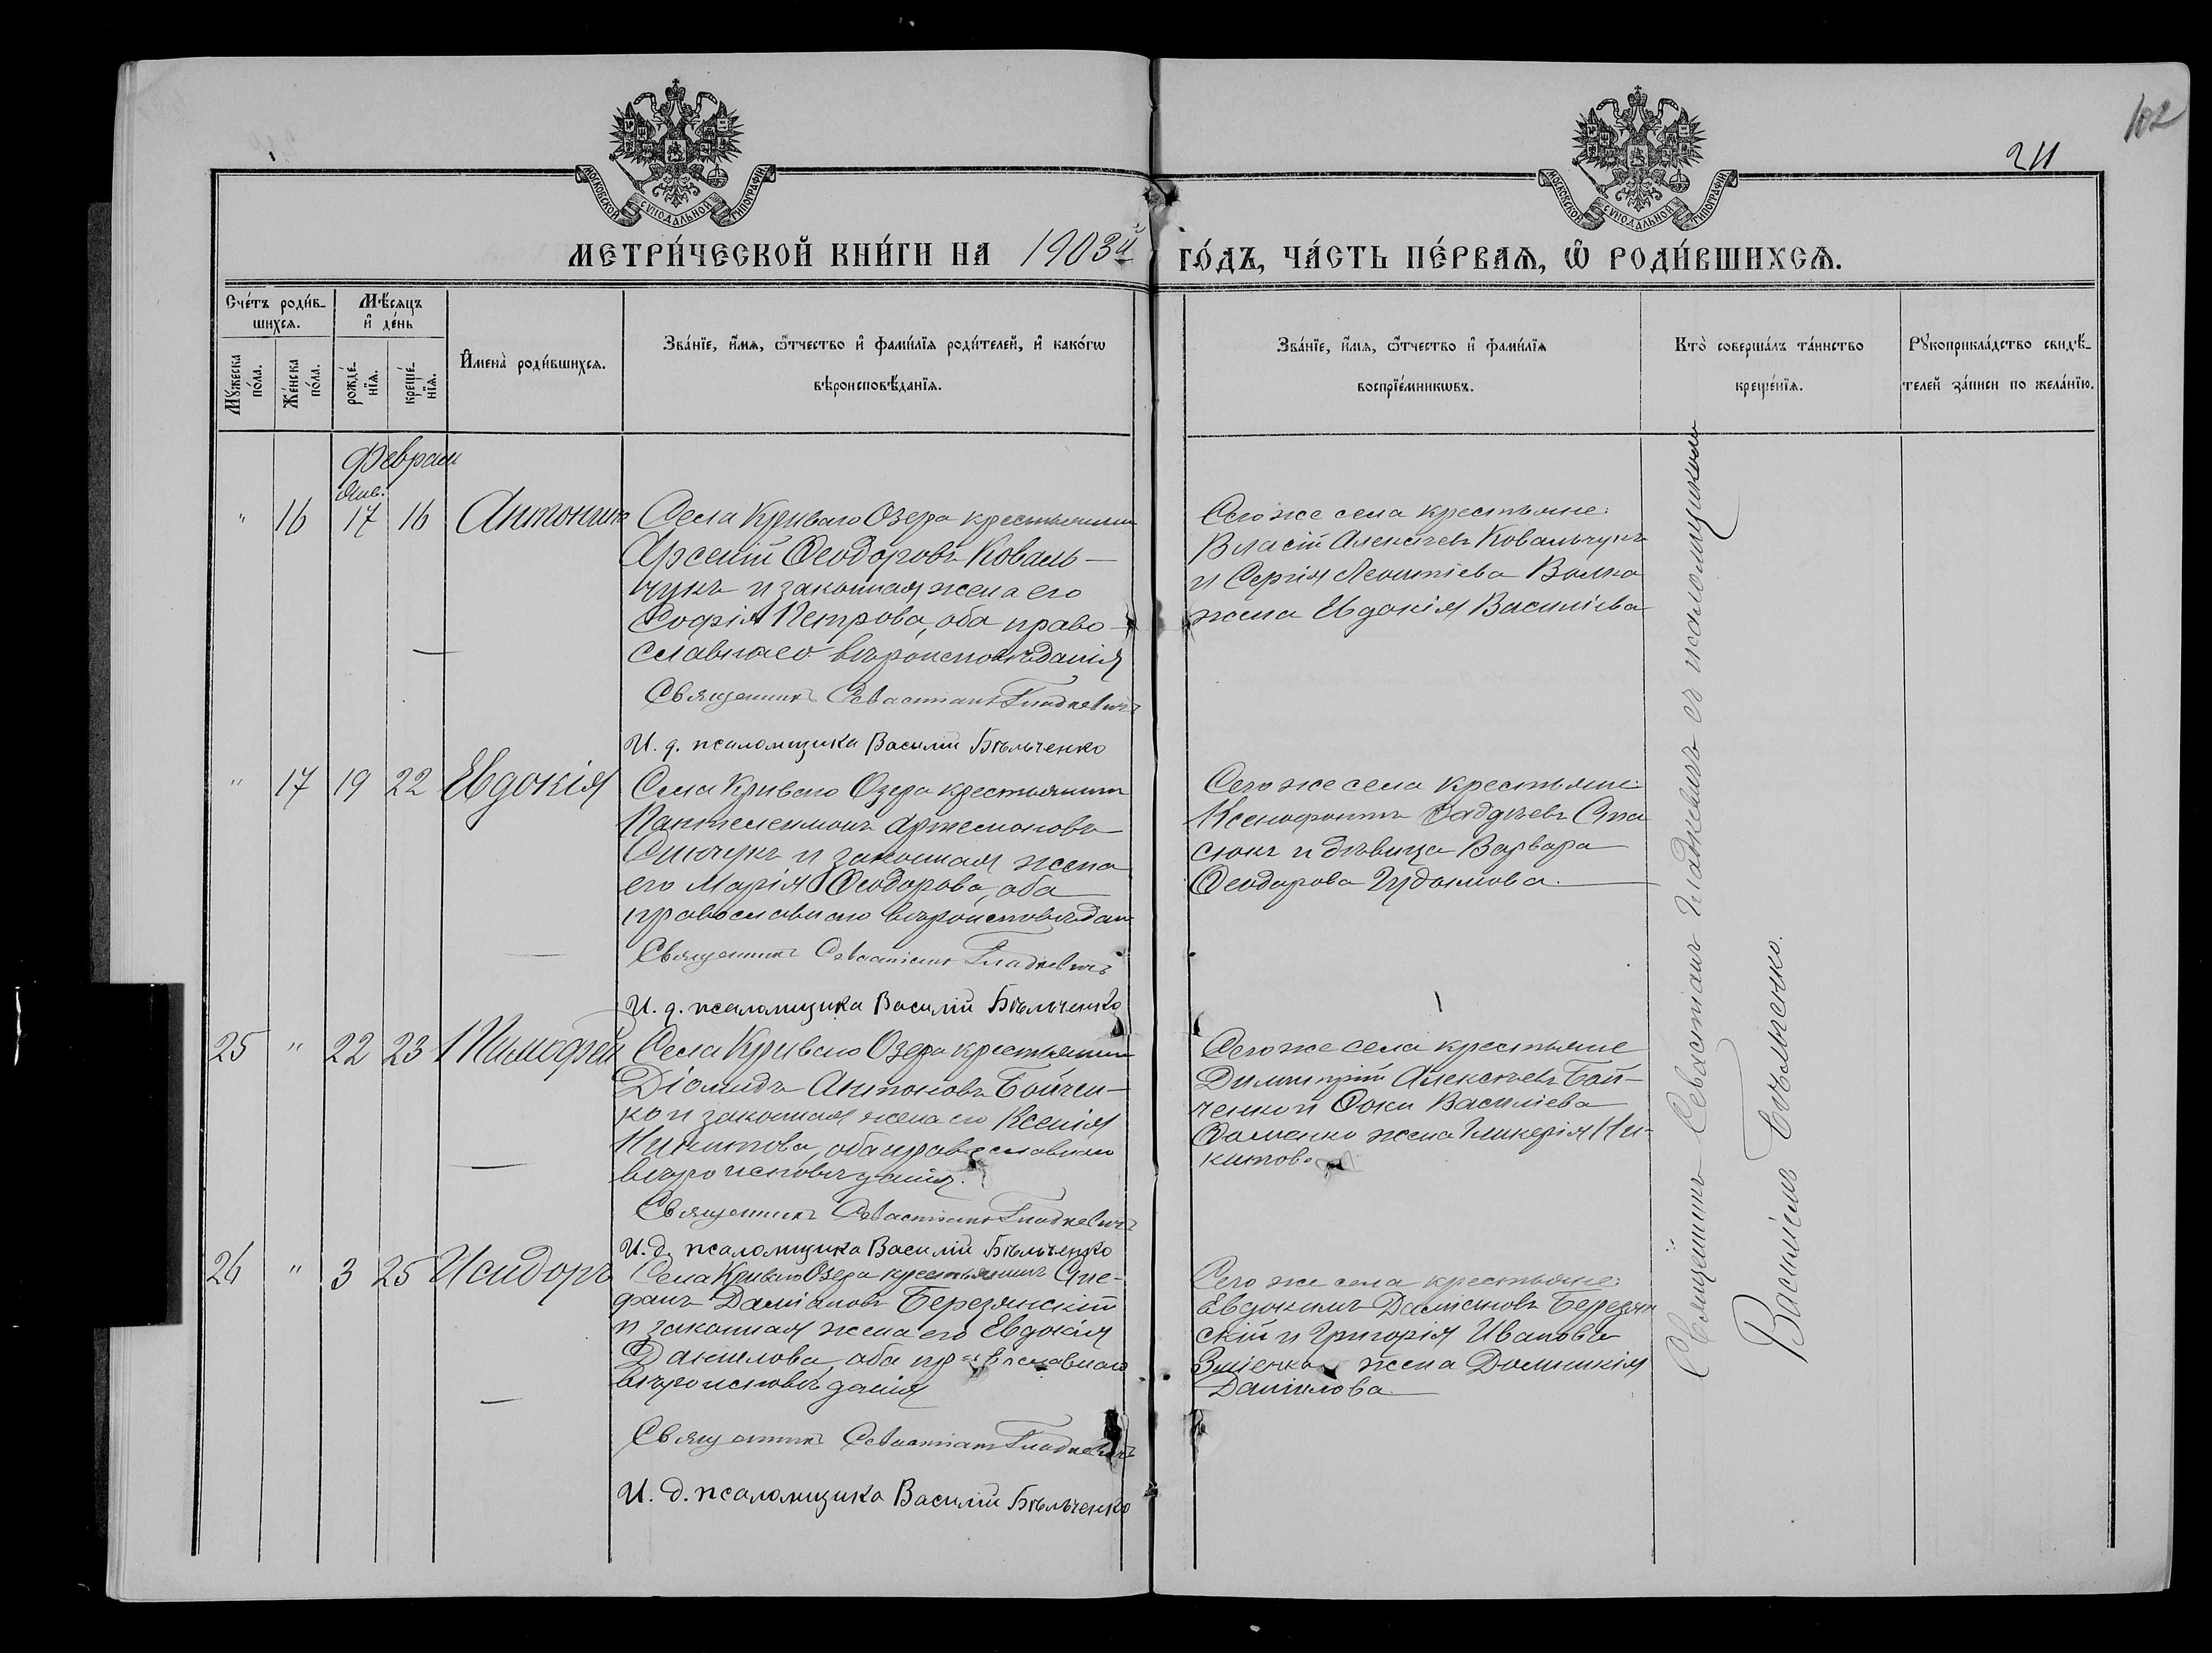 102
211
МОСКОВСКОЙ СѴНОДАЛЬНОЙ ТИПОГРАФІИ
МОСКОВСКОЙ СѴНОДАЛЬНОЙ ТИПОГРАФІИ
МЕТРИ́ЧЕСКОЙ КНИ́ГИ НА 1903й ГО́ДЪ, ЧА́СТЬ ПЕ́РВАѦ, Ѿ РОДИ́ВШИХСѦ.
Сче́тъ роди́в-
шихсѧ.
Мѣ́сяцъ
и҆ де́нь
Мꙋ́жеска
по́ла.
Же́нска
по́ла.
рожде́-
нїѧ.
креще́-
нїѧ.
И҆мена̀ роди́вшихсѧ.
Зва́нїе, и҆́мѧ, ѻ҆́тчество и҆ фами́лїѧ роди́телей, и҆ како́гѡ
вѣроисповѣ́данїѧ.
Зва́нїе, и҆́мѧ, ѻ҆́тчество и҆ фами́лїѧ
воспрїе́мникѡвъ.
Кто̀ соверша́лъ та́инство
креще́нїѧ.
Рꙋкоприкла́дство свидѣ́-
телей за́писи по жела́нїю.
Февраль
Янв.
" 16 17 16 Антонина
Села Криваго Озера крестьянинъ
Арсеній Ѳеодоровъ Коваль-
чукъ и законная жена его
Софія Петрова, оба право-
славнаго вѣроисповѣданія
Священникъ Севастіанъ Гладкевичъ
И. д. псаломщика Василій Бѣльченко
Сего же села крестьяне:
Власій Алексѣевъ Ковальчукъ
и Сергія Леонтіева Волка
жена Евдокія Василіева
" 17 19 22 Евдокія
Села Криваго Озера крестьянинъ
Пантелеимонъ Артемоновъ
и законная жена
его Марія Ѳеодорова, оба
православнаго вѣроисповѣдан.
Священникъ Севастіанъ Гладкевичъ
И. д. псаломщика Василій Бѣльченко
Сего же села крестьяне:
Ксенофонтъ Фаддѣевъ Ста-
сюкъ и дѣвица Варвара
Ѳеодорова
25 " 22 23 Тимоѳей
Села Криваго Озера крестьянинъ
Діомидъ Антоновъ Бойчен-
ко и законная жена его Ксенія
Никитова, оба православнаго
вѣроисповѣданія.
Священникъ Севастіанъ Гладкевичъ
И. д. псаломщика Василій Бѣльченко
Сего же села крестьяне
Димитрій Алексѣевъ Бой-
ченко и Ѳоки Василіева
жена Гликерія Ни-
китова
26 " 3 25 Исидоръ
Села Криваго Озера крестьянинъ Сте-
фанъ Даміановъ Березянскій
и законная жена его Евдокія
Данилова, оба православнаго
вѣроисповѣданія
Священникъ Севастіанъ Гладкевичъ
И. д. псаломщика Василій Бѣльченко
Сего же села крестьяне:
Евдокимъ Даміановъ Березян-
скій и Григорія Иванова
Зміенка жена Домникія
Даніилова
Священникъ Севастіанъ Гладкевичъ съ псаломщикомъ
Василіемъ Бѣльченко.